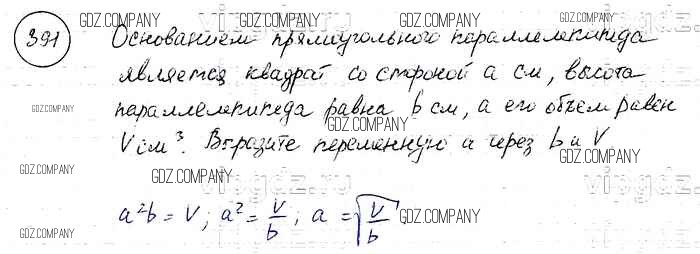 391
Основанием прямоугольного параллелепипеда
является квадрат со стороной a см, высота
параллелепипеда равна b см, а его объем равен
V см³. Выразите переменную a через b и V
a²b = V; a² = V/b; a = √(V/b)
GDZ.COMPANY
GDZ.COMPANY
GDZ.COMPANY
GDZ.COMPANY
GDZ.COMPANY
GDZ.COMPANY
GDZ.COMPANY
GDZ.COMPANY
GDZ.COMPANY
GDZ.COMPANY
GDZ.COMPANY
GDZ.COMPANY